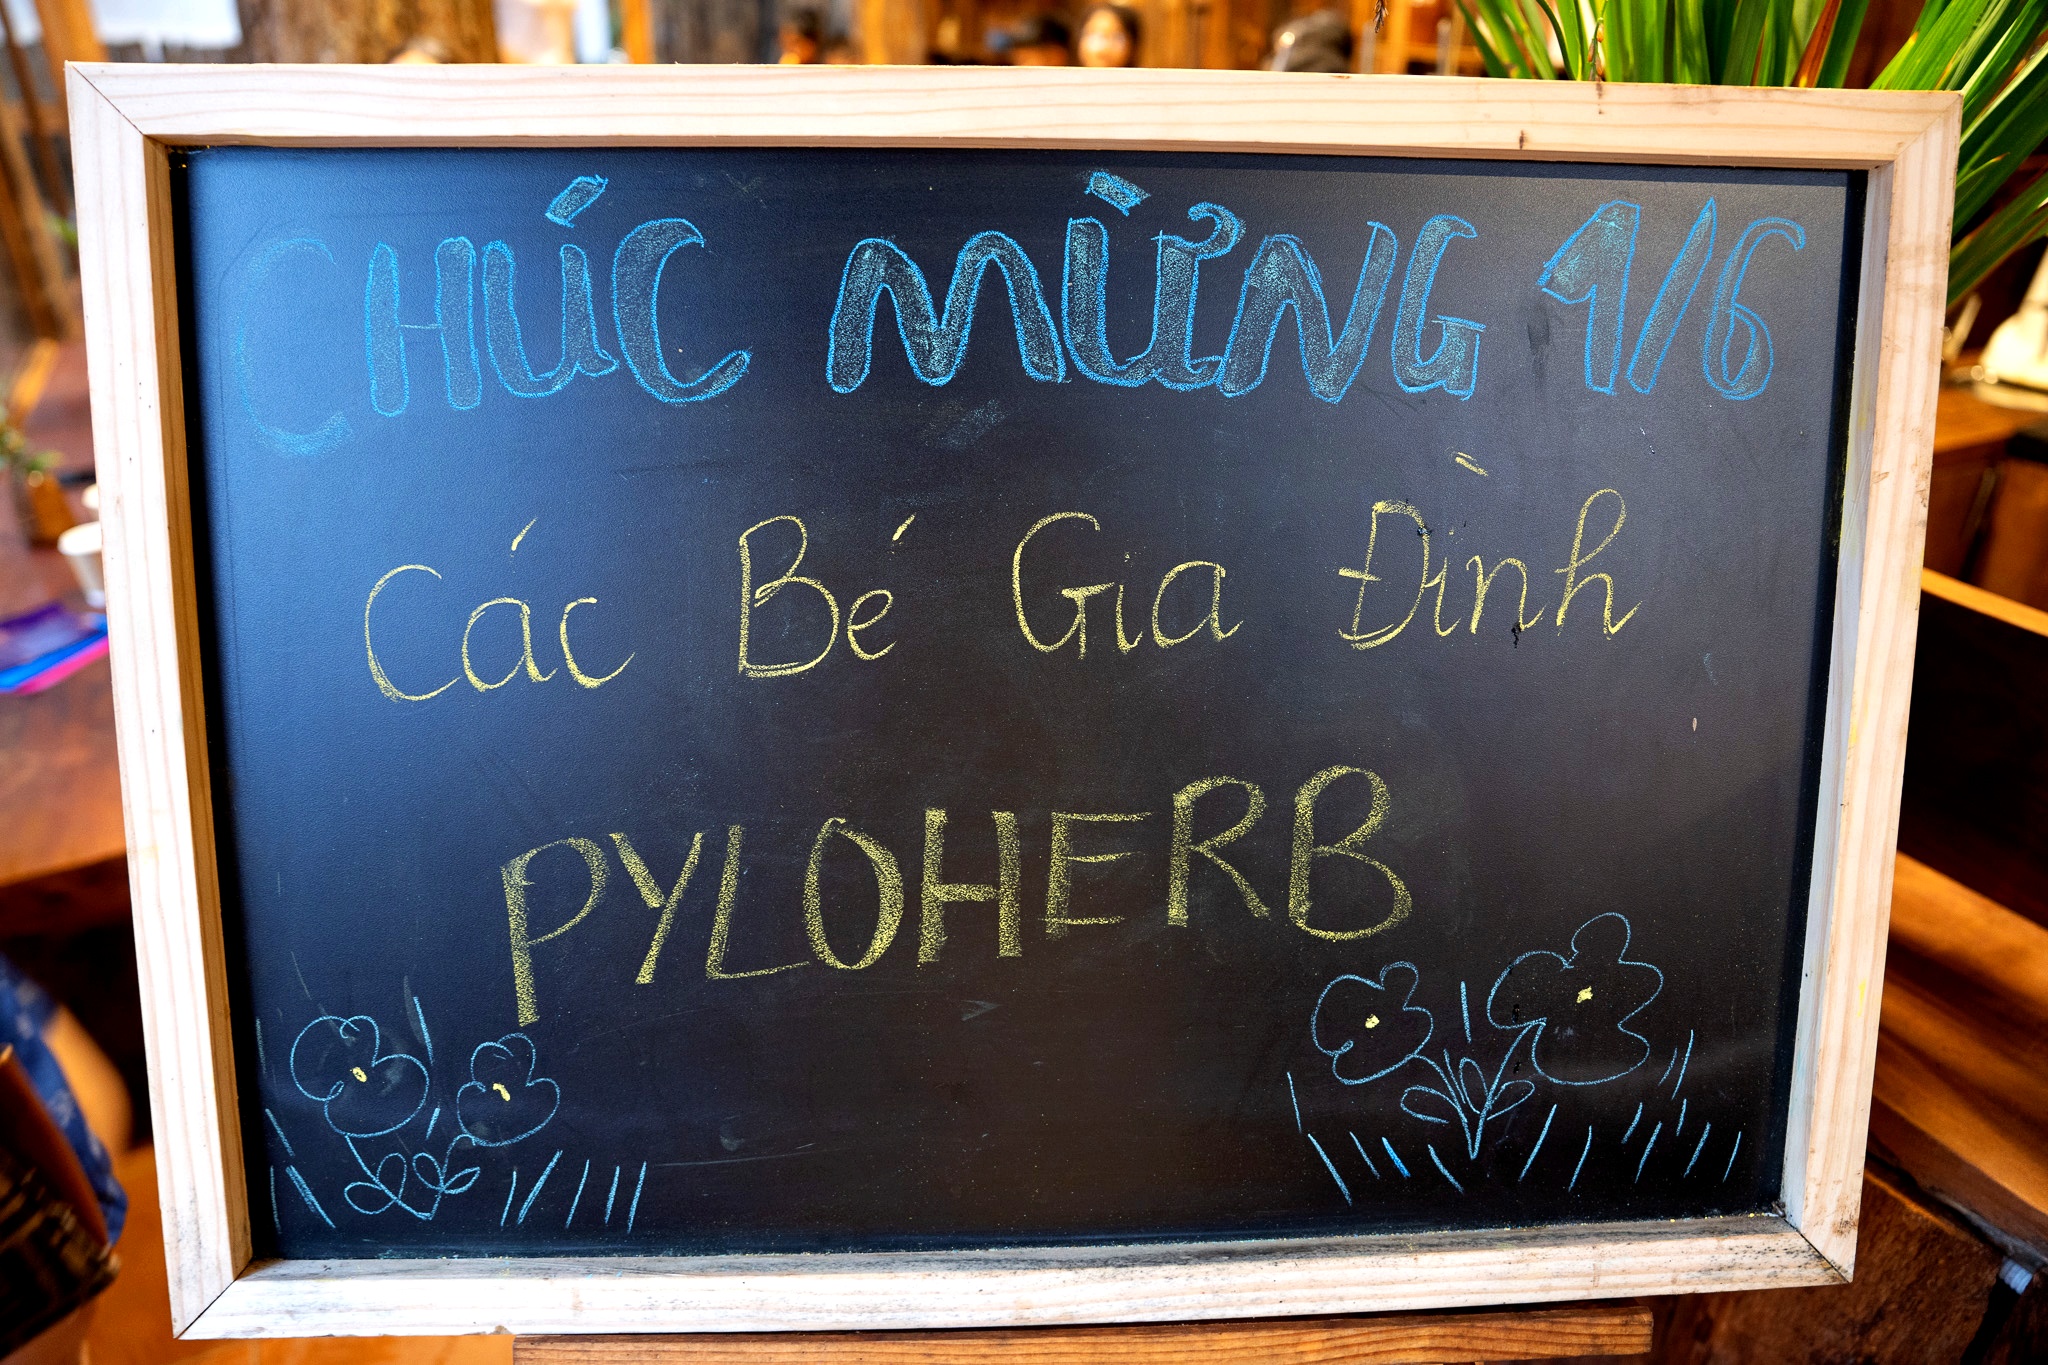 CHÚC MỪNG 1/6
Các Bé Gia Đình
PYLOHERB